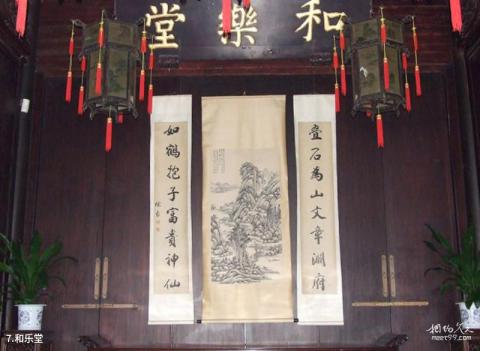 和樂堂
叠石為山文章淵府
如鶴抱子富貴神仙
7.和乐堂
相约久久
meet99.com